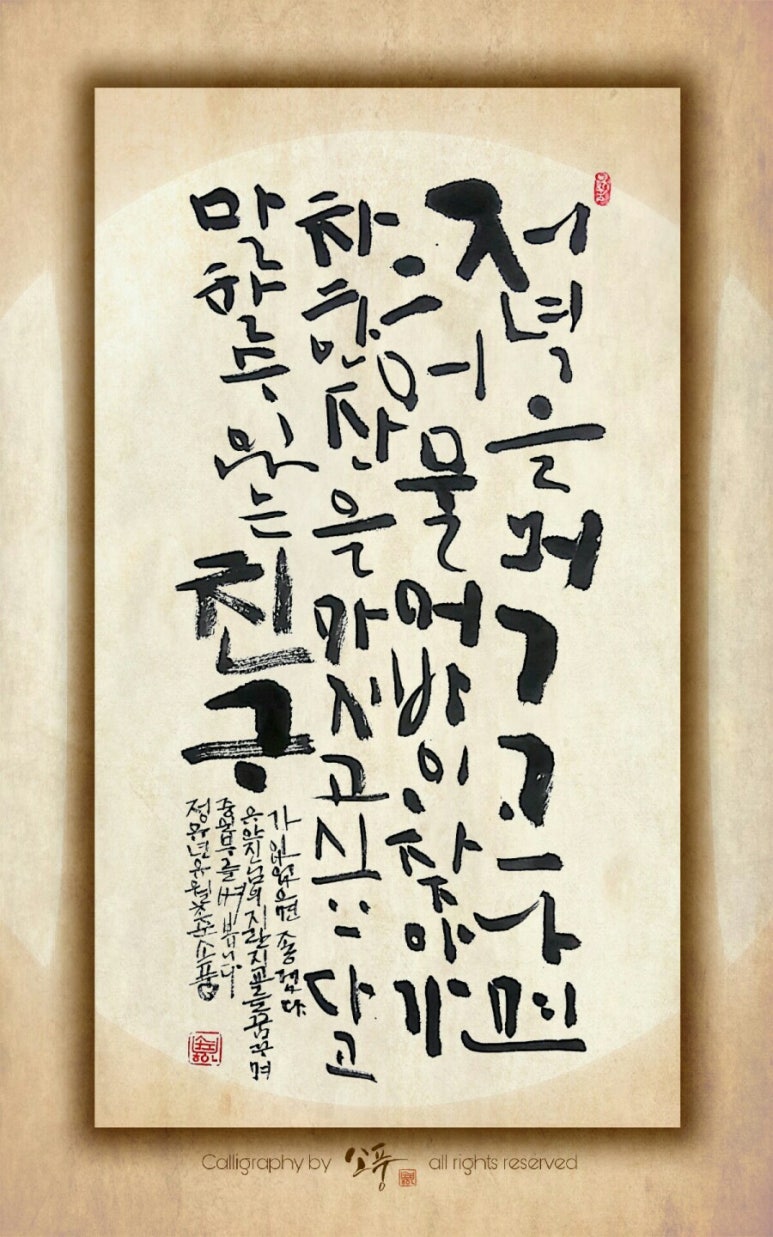 저녁을 먹고나면
허물없이 찾아가
차 한잔을 마시고 싶다고
말할 수 있는 친구
가 있었으면 좋겠다.
유안진님의 지란지교를 꿈꾸며
중 일부를 써 봅니다.
정유년 유월 소풍
Calligraphy by 소풍 all rights reserved